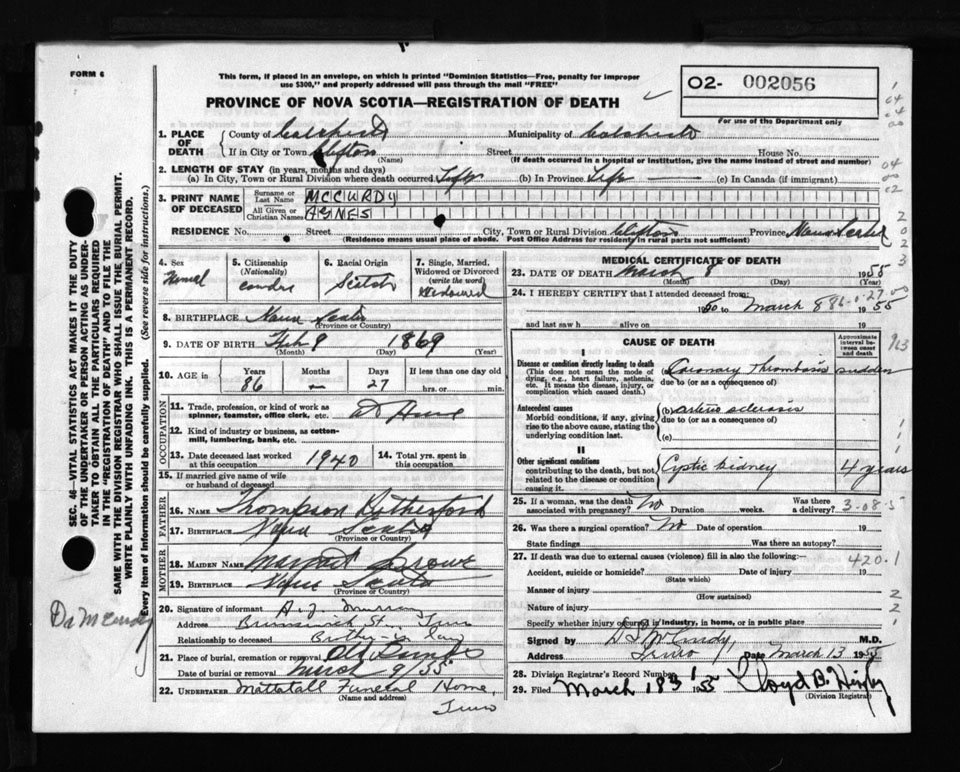 FORM 6
This form, if placed in an envelope, on which is printed "Dominion Statistics—Free, penalty for improper
use $300," and properly addressed will pass through the mail "FREE"
O2- 002056
For use of the Department only
PROVINCE OF NOVA SCOTIA—REGISTRATION OF DEATH
1. PLACE OF DEATH County of Colchester Municipality of Colchester
If in City or Town Clifton (Name) Street House No.
(If death occurred in a hospital or institution, give the name instead of street and number)
2. LENGTH OF STAY (in years, months and days)
(a) In City, Town or Rural Division where death occurred Life (b) In Province Life (c) In Canada (if immigrant)
3. PRINT NAME OF DECEASED
Surname or Last Name MCCURDY
All Given or Christian Names AGNES
RESIDENCE No. Street City, Town or Rural Division Clifton Province Nova Scotia
(Residence means usual place of abode. Post Office Address for residents in rural parts not sufficient)
4. Sex
5. Citizenship (Nationality)
6. Racial Origin Scotch
7. Single, Married, Widowed or Divorced (write the word) Widowed
8. BIRTHPLACE Nova Scotia
(Province or Country)
9. DATE OF BIRTH Feb 9 1869
(Month) (Day) (Year)
10. AGE in Years 86 Months — Days 27 If less than one day old hrs. or min.
OCCUPATION
11. Trade, profession, or kind of work as spinner, teamster, office clerk, etc. At Home
12. Kind of industry or business, as cotton-mill, lumbering, bank, etc.
13. Date deceased last worked at this occupation 1940
14. Total yrs. spent in this occupation
15. If married give name of wife or husband of deceased
FATHER
16. NAME Thompson Rutherford
17. BIRTHPLACE Nova Scotia
(Province or Country)
MOTHER
18. MAIDEN NAME Margaret
19. BIRTHPLACE Nova Scotia
(Province or Country)
20. Signature of informant A. J. Murray
Address Brunswick St., Truro
Relationship to deceased Brother-in law
21. Place of burial, cremation or removal Old
Date of burial or removal March 9/55
22. UNDERTAKER Mattatall Funeral Home,
(Name and address)
Truro
MEDICAL CERTIFICATE OF DEATH
23. DATE OF DEATH March 8 1955
(Month) (Day) (Year)
24. I HEREBY CERTIFY that I attended deceased from:
1950 to March 8 1955
86-0-27
and last saw h alive on 19
CAUSE OF DEATH
Approximate interval between onset and death
I
Disease or condition directly leading to death
(This does not mean the mode of dying, e.g., heart failure, asthenia, etc. It means the disease, injury, or complication which caused death.)
Coronary Thrombosis sudden
due to (or as a consequence of)
Antecedent causes
Morbid conditions, if any, giving rise to the above cause, stating the underlying condition last.
(b) arterio sclerosis
due to (or as a consequence of)
(c)
II
Other significant conditions
contributing to the death, but not related to the disease or condition causing it.
Cystic kidney 4 years
25. If a woman, was the death associated with pregnancy? No Duration weeks. Was there a delivery?
3-08-5
26. Was there a surgical operation? No Date of operation
State findings Was there an autopsy?
27. If death was due to external causes (violence) fill in also the following:—
420.1
Accident, suicide or homicide? Date of injury 19
(State which)
Manner of injury
(How sustained)
Nature of injury
Specify whether injury occurred in industry, in home, or in public place
Signed by D S McCurdy, M.D.
Address Truro Date March 13 1955
28. Division Registrar's Record Number
29. Filed March 18th 1955
(Division Registrar)
SEC. 46—VITAL STATISTICS ACT MAKES IT THE DUTY
OF THE UNDERTAKER OR PERSON ACTING AS UNDER-
TAKER TO OBTAIN ALL THE PARTICULARS REQUIRED
IN THE "REGISTRATION OF DEATH" AND TO FILE THE
SAME WITH THE DIVISION REGISTRAR WHO SHALL ISSUE THE BURIAL PERMIT.
WRITE PLAINLY WITH UNFADING INK. THIS IS A PERMANENT RECORD.
Every item of information should be carefully supplied. (See reverse side for instructions.)
Dr McCurdy